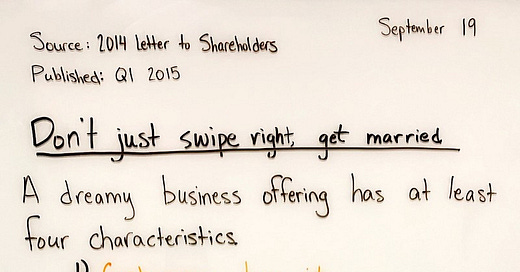 September 19
Source: 2014 letter to Shareholders
Published: Q1 2015
Don't just swipe right, get married
A dreamy business offering has at least
four characteristics.
1)